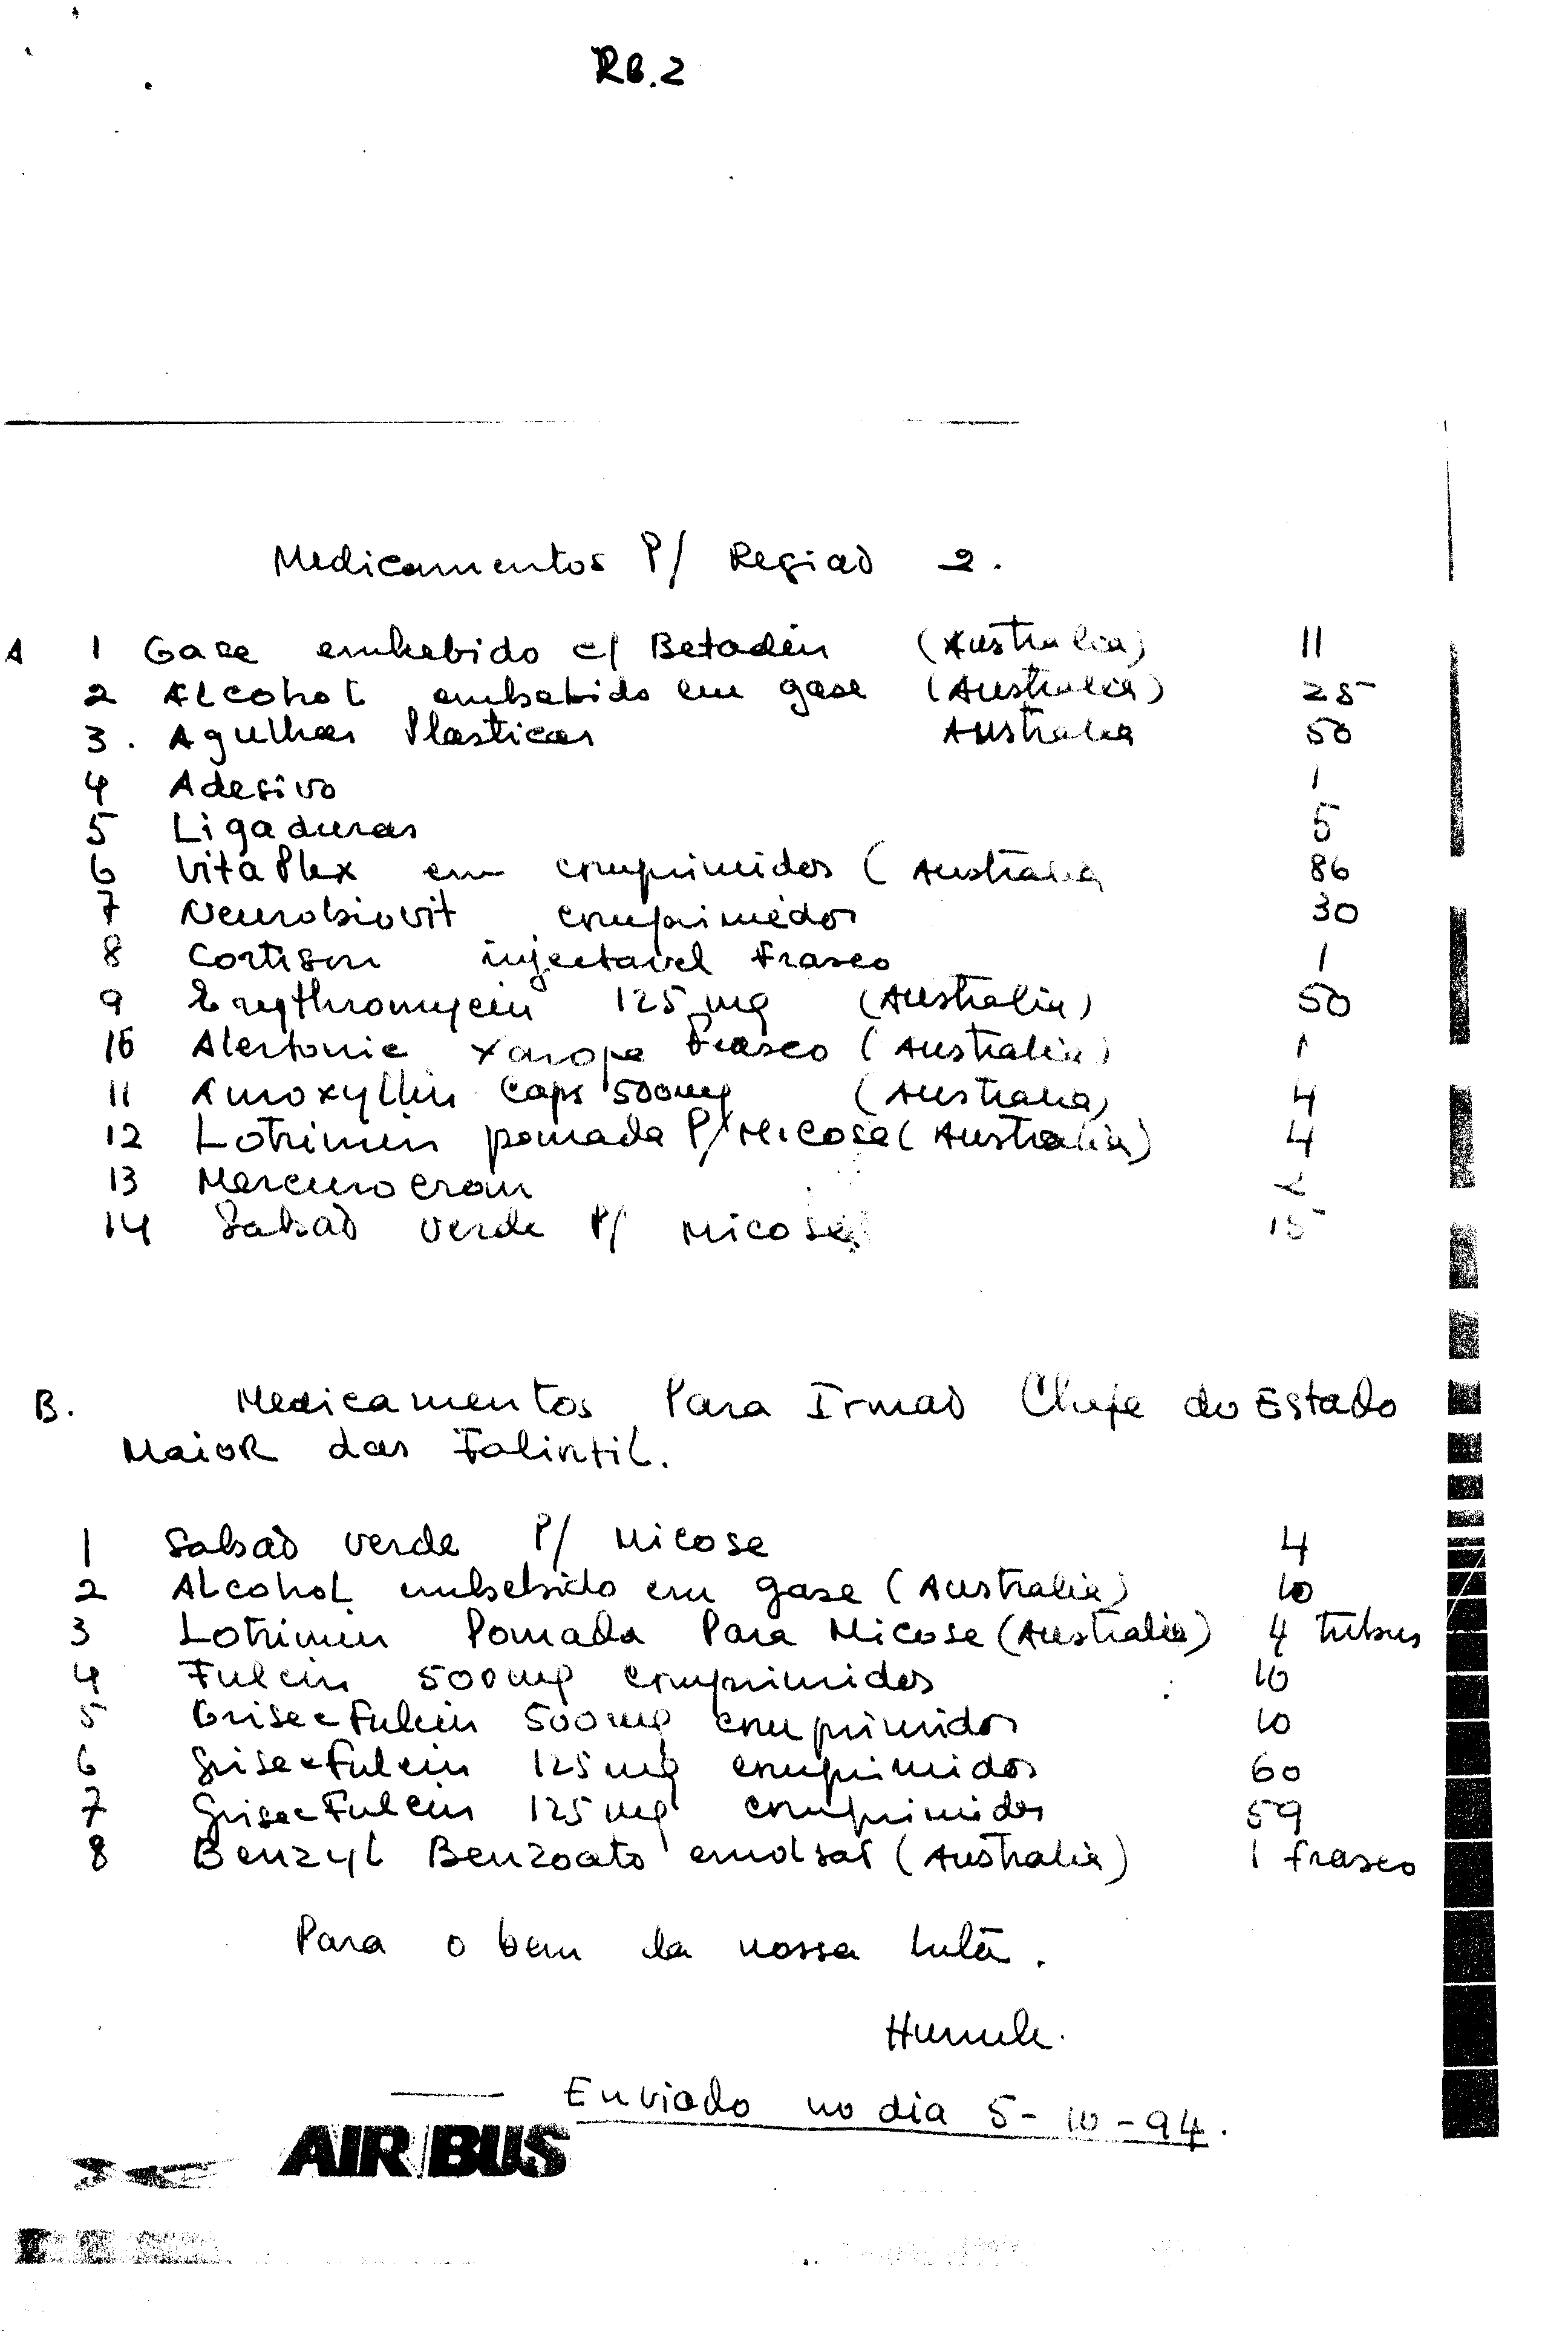 RB.2
Medicamentos P/ Região 2.
A 1 Gase embebido c/ Betadin (Australia) 11
2 Alcohol embebido em gase (Australia) 25
3. Agulhas Plasticas Australia 50
4 Adesivo 1
5 Ligaduras 5
6 Vitaplex em comprimidos (Australia 86
7 Neurobiovit comprimidos 30
8 Cortison injectavel frasco 1
9 Erythromycin 125 mg (Australia) 50
10 Alertonic xarope frasco (Australia) 1
11 Amoxyllin Caps 500mg (Australia) 4
12 Lotrimin pomada P/ Micose (Australia) 4
13 Mercurocrom 2
14 Sabaõ verde P/ Micose 15
B. Medicamentos Para Irmaõ Chefe do Estado
Maior das Falintil.
1 Sabaõ verde P/ Micose 4
2 Alcohol embebido em gase (Australia) 10
3 Lotrimin Pomada Para Micose (Australia) 4 tubus
4 Fulcin 500mg comprimidos 10
5 Grisefulcin 500mg comprimidos 10
6 Grisefulcin 125mg comprimidos 60
7 Grisefulcin 125mg comprimidos 59
8 Benzyl Benzoato (Australia) 1 frasco
Para o bem da nossa luta.
Enviado no dia 5-10-94.
AIRBUS